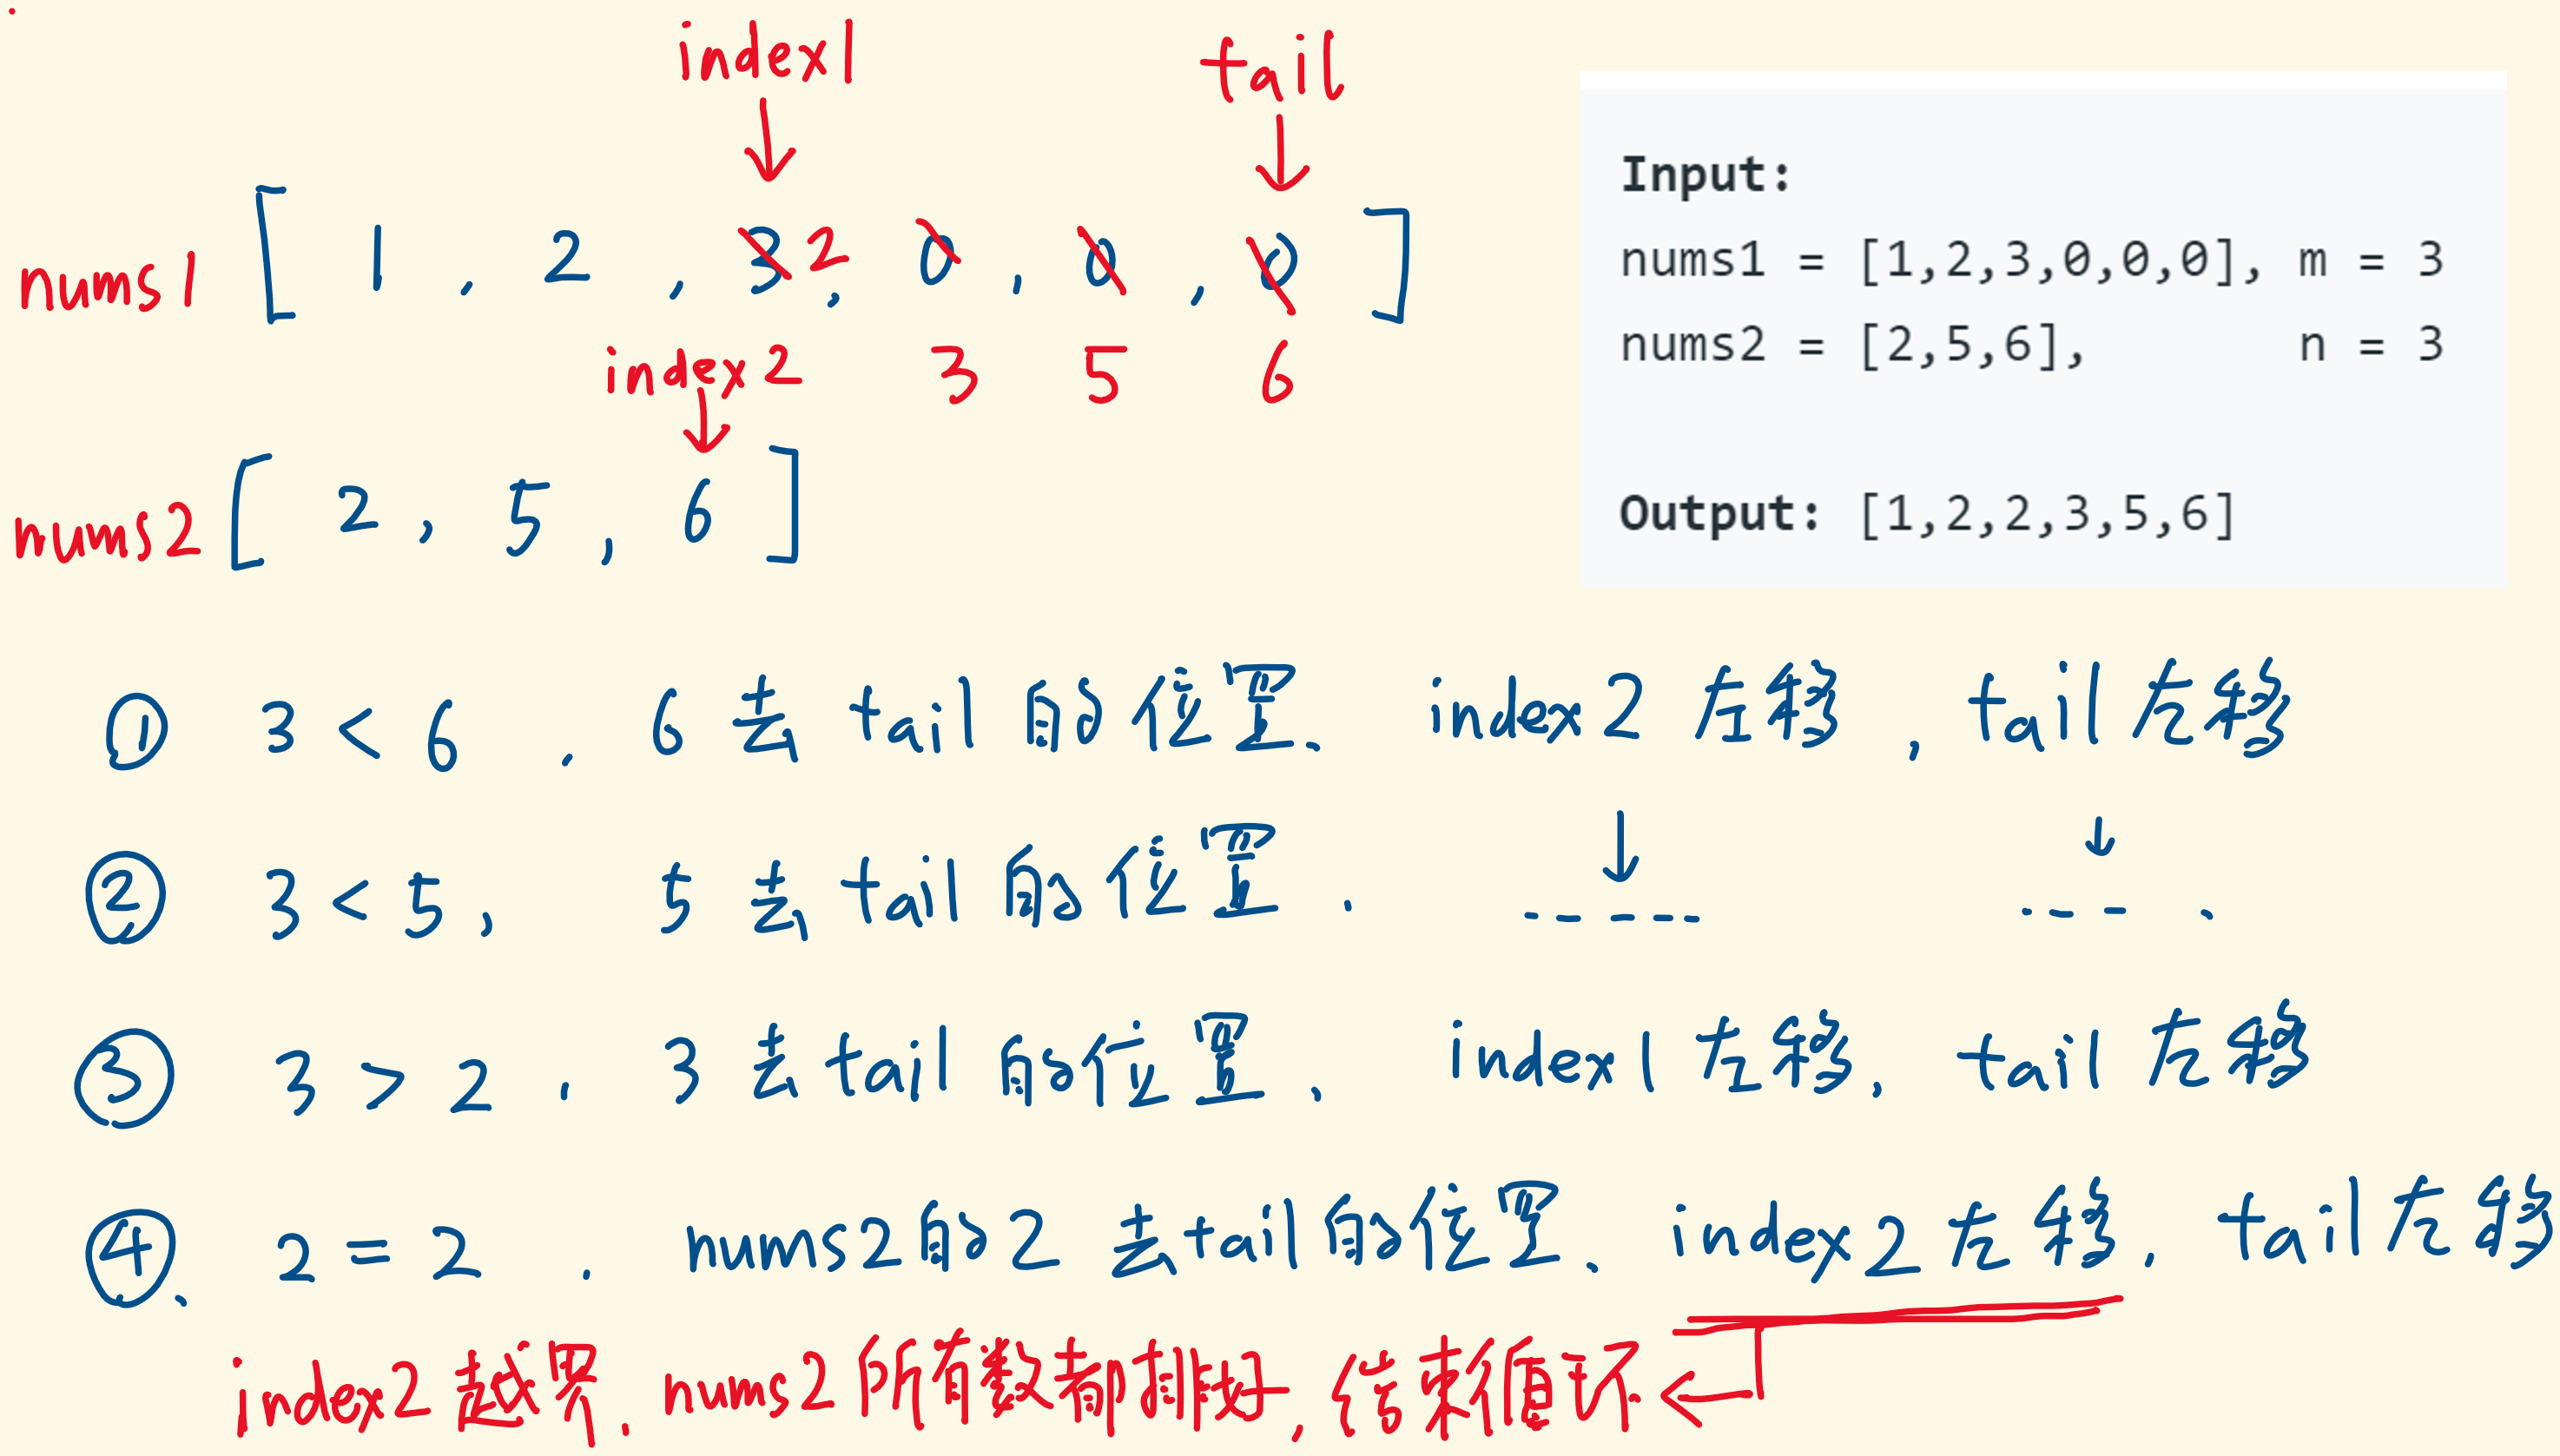 index1 tail
nums1 [ 1 , 2 , 3 2 , 0 , 0 , 0 ]
index2 3 5 6
nums2 [ 2 , 5 , 6 ]
Input:
nums1 = [1,2,3,0,0,0], m = 3
nums2 = [2,5,6], n = 3
Output: [1,2,2,3,5,6]
① 3 < 6 , 6 去 tail 的位置、 index2 左移 , tail 左移
② 3 < 5 , 5 去 tail 的位置 .
③ 3 > 2 , 3 去 tail 的位置 、 index1 左移, tail 左移
④、 2 = 2 . nums2的2 去tail的位置、 index2左移, tail左移
index2越界, nums2所有数都排好, 结束循环